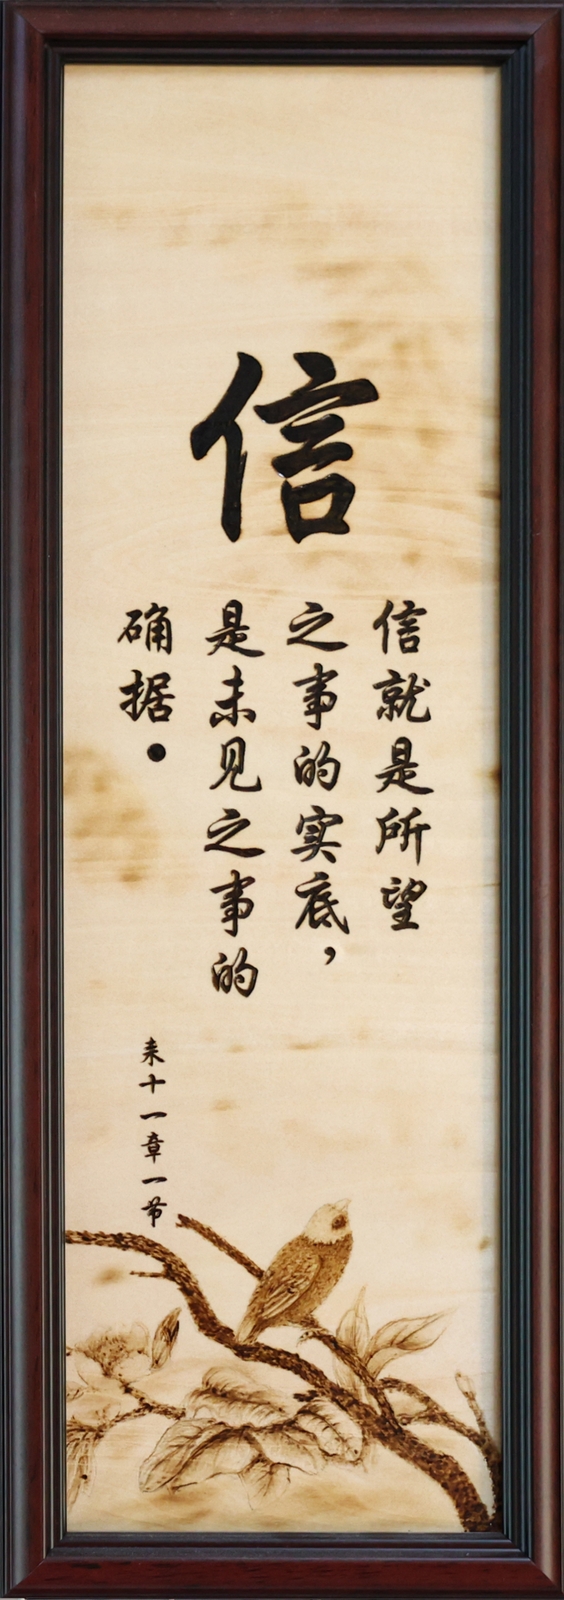 信
信就是所望
之事的实底，
是未见之事的
确据。
来十一章一节